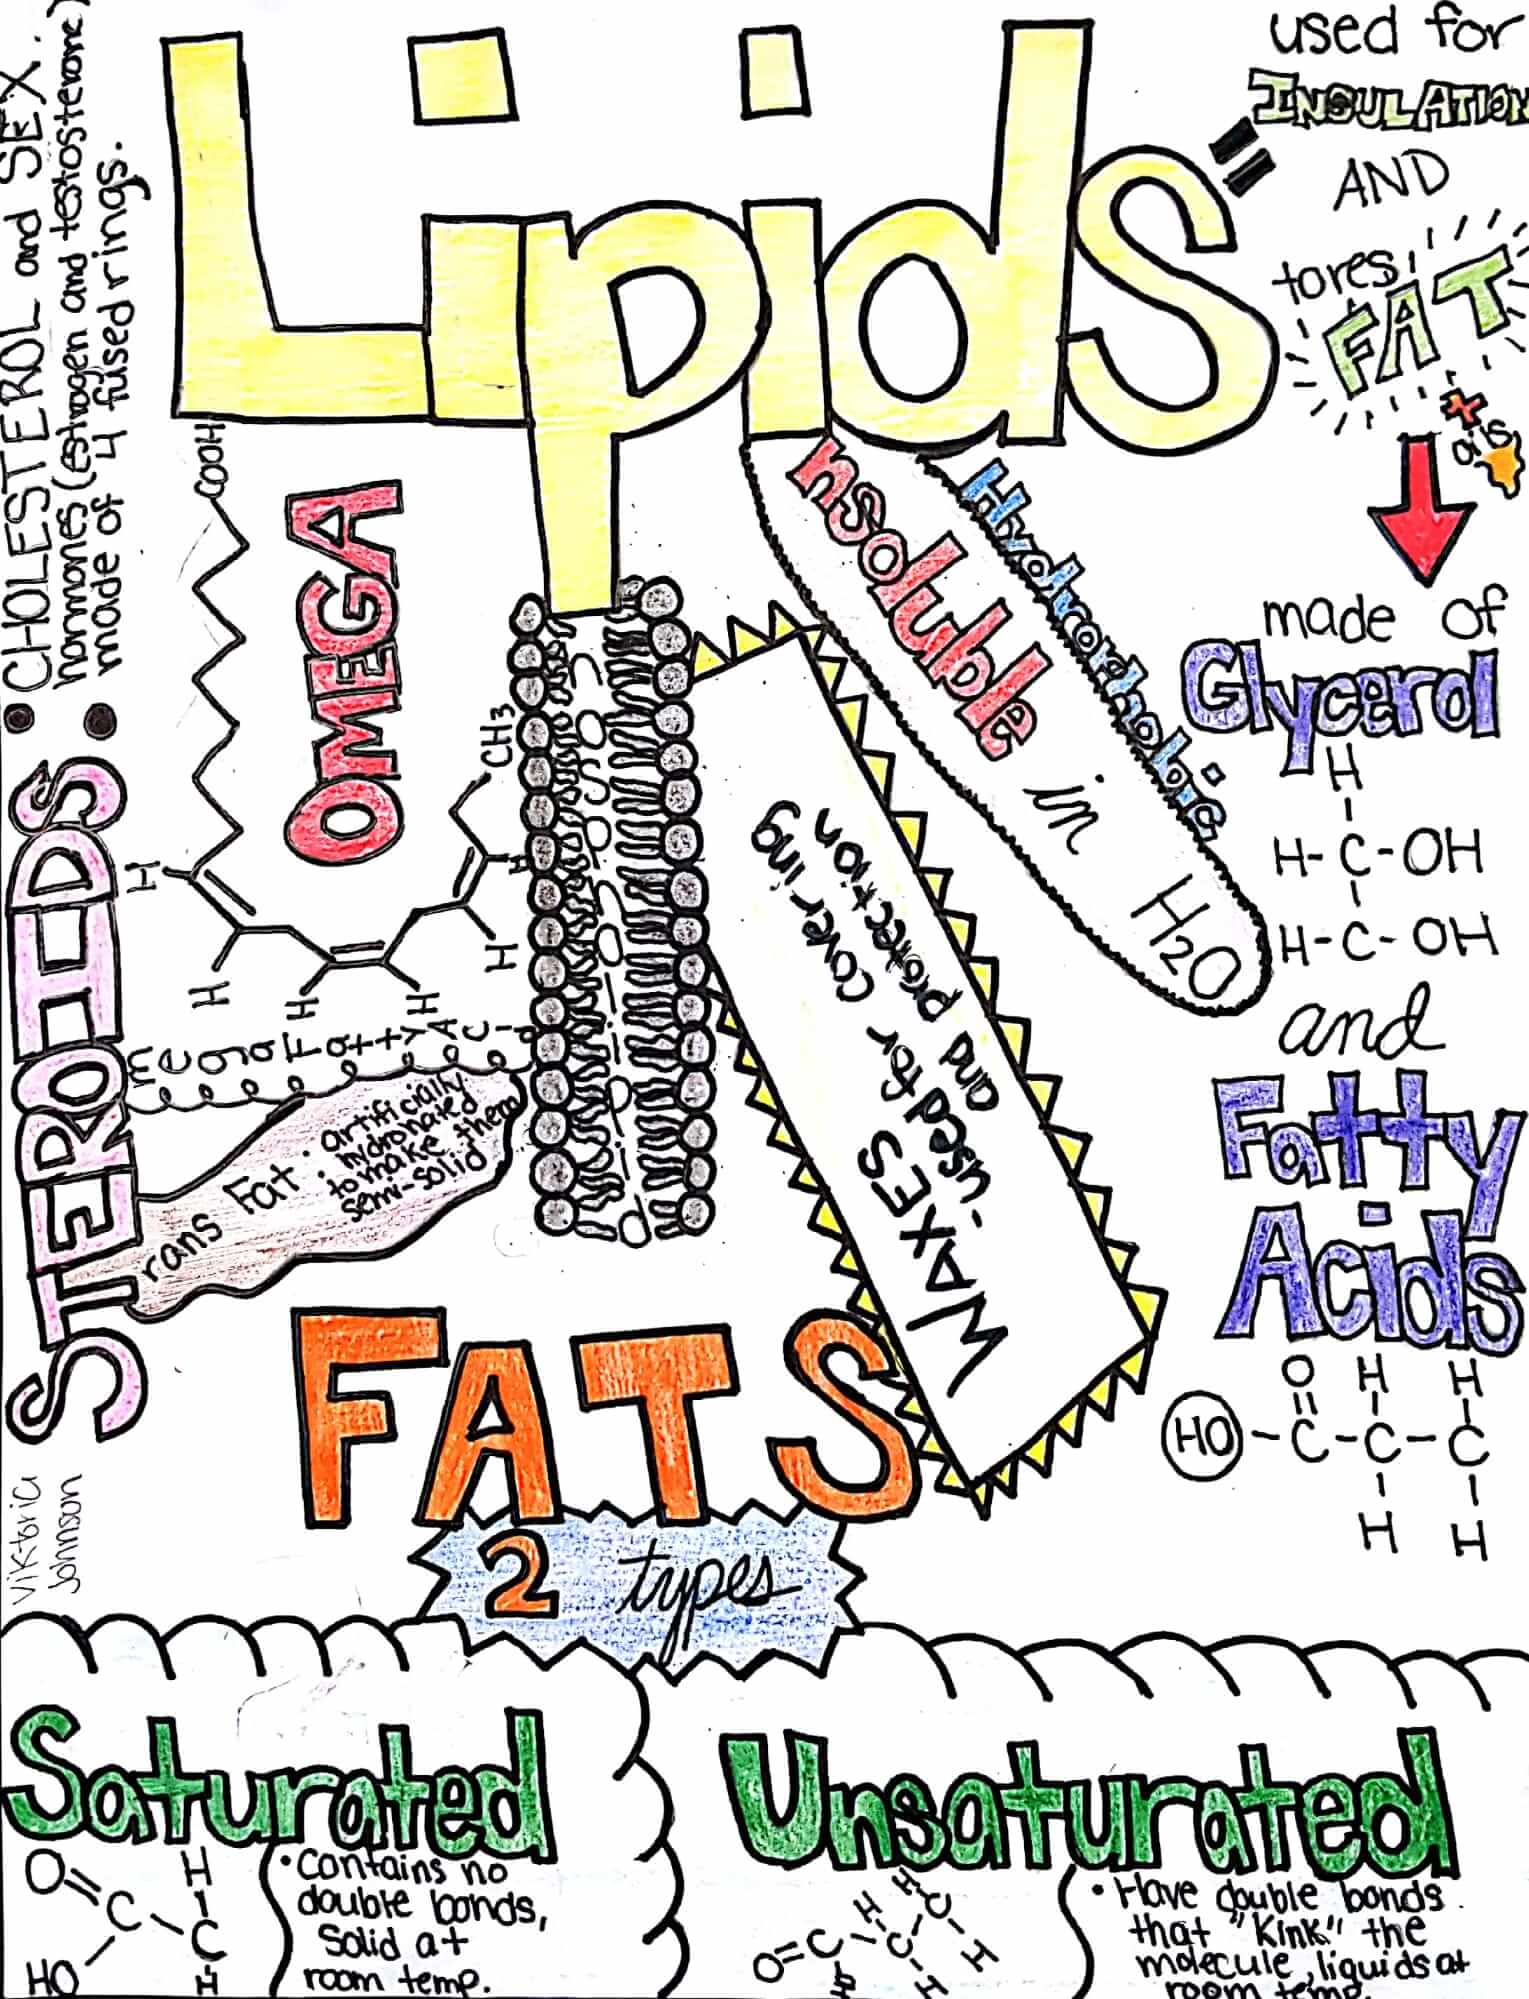 Lipids
used for
INSULATION
AND
tores
FAT
+
oils
made of
Glycerol
H
H-C-OH
H-C-OH
and
Fatty
Acids
O H H
HO-C-C-C
H H
• CHOLESTEROL and SEX
hormones (estrogen and testosterone)
• made of 4 fused rings.
STEROIDS
Viktoria
Johnson
OMEGA
COOH
CH3
H
H
H
H
H
H
mega Fatty Acid
rans Fat · artificially
hydronated
to make them
semi-solid
nsoluble in H2O
Hydrophobic
WAXES
-used for covering
and protection
FATS
2 types
Saturated
O H
C C
HO H
• contains no
double bonds,
solid at
room temp.
Unsaturated
H H
O=C C C
H H
• Have double bonds
that "Kink" the
molecule, liquids at
room temp.